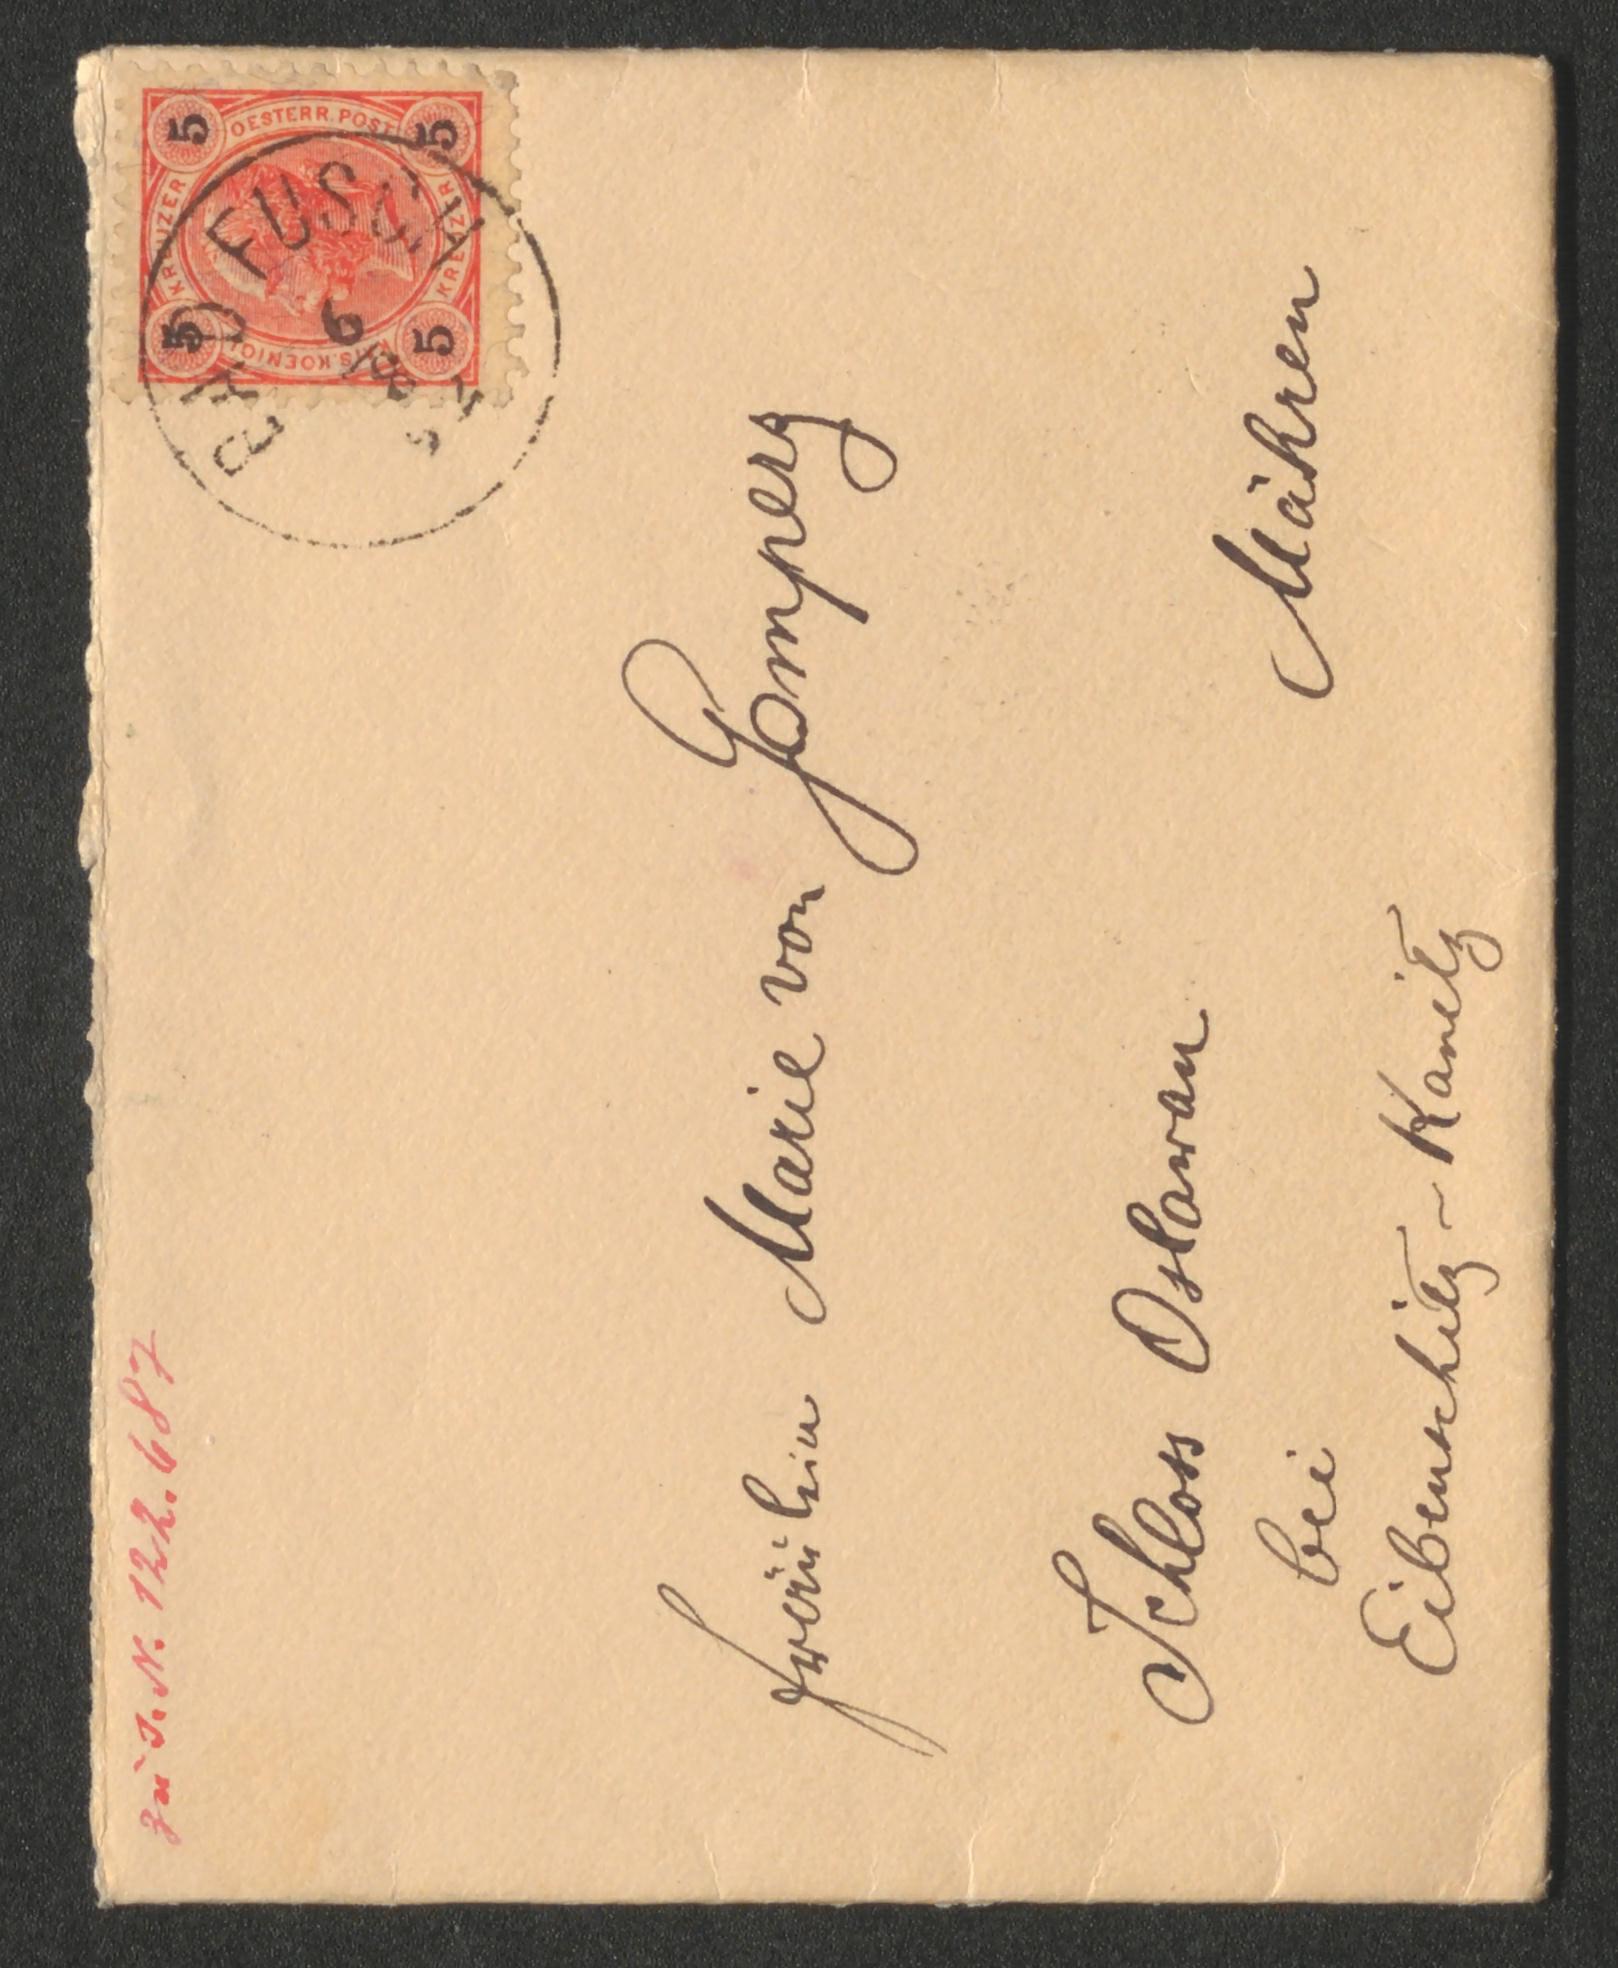 zu I.N. 122.687
OESTERR. POST
KREUZER
KREUZER
5
5
5
5
BAD FUSCH
6/8
Fräulein Marie von Gomperz
Schloss Oslawan
bei
Eibenschitz-Kanitz
Mähren